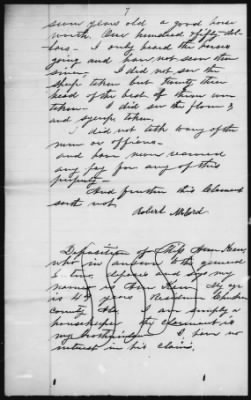 7
seven years old a good horse
worth One hundred & fifty dol-
lars. I only heard the horses
going and have not seen them
since. I did not see the
sheep taken but twenty three
head of the best of them were
taken. I did see the flour &
and syrup taken.
I did not talk to any of the
men or officers.
and have never received
any pay for any of this
property.
And further this claimant
saith not.
Robert McCord
Deposition of Ann
who in answer to the general
deposes and says my
name is Ann My age
is 43 years Residence Cherokee
County Ala. I am simply a
housekeeper the claimant is
my I have no
interest in his claim.